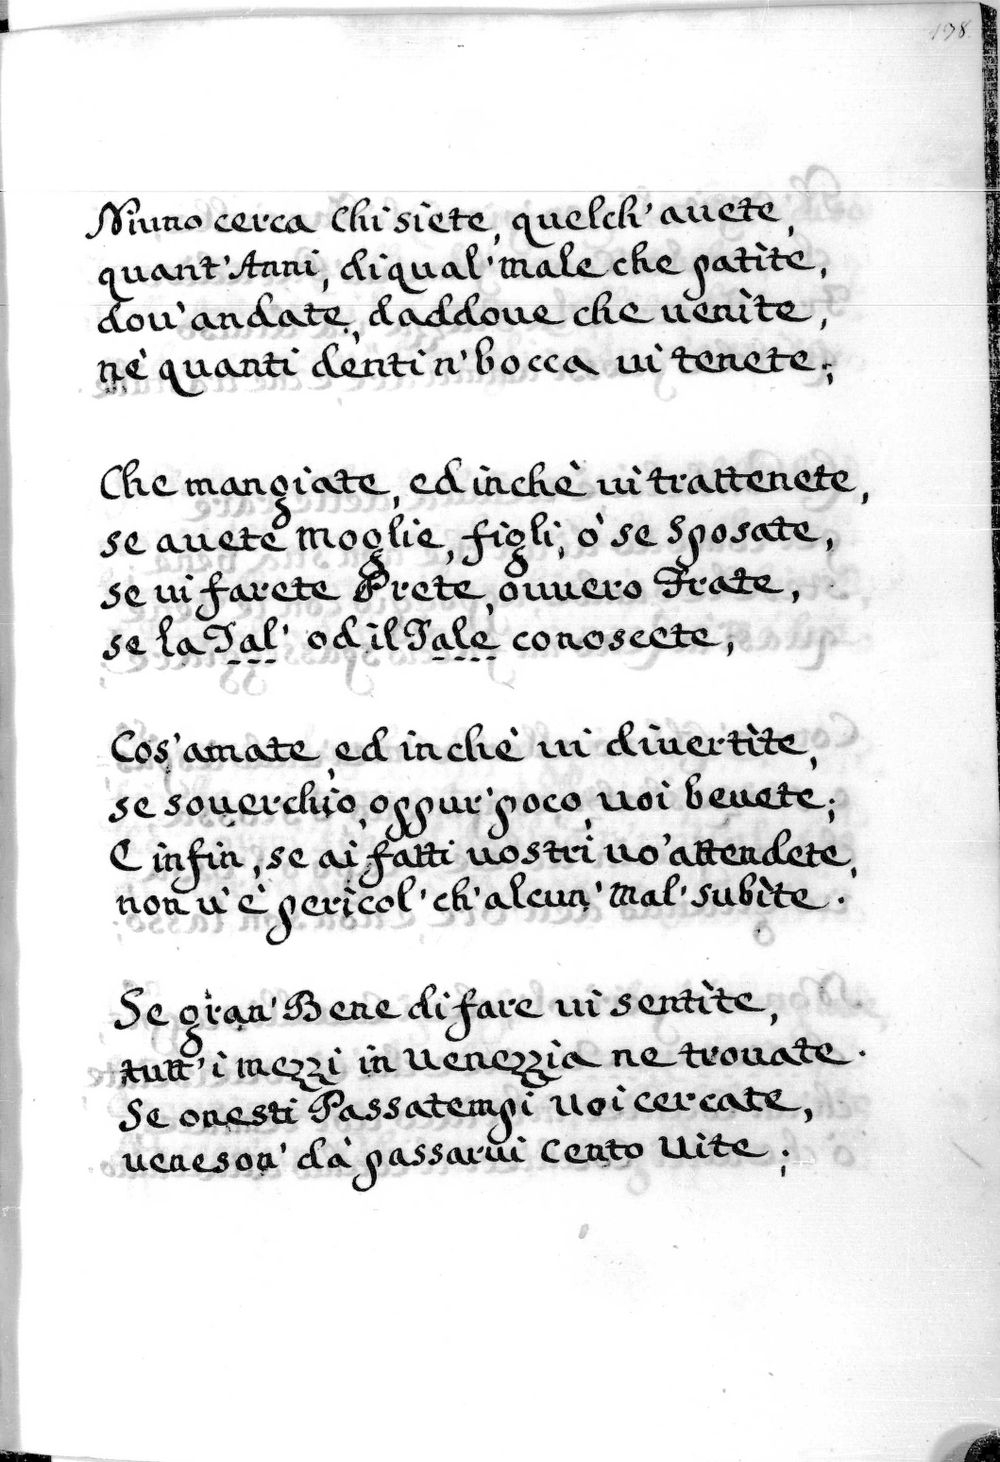 198.
Niuno cerca Chi siete, quelch' auete,
quant' Anni, di qual' male che patìte,
dou' andate, daddoue che uenìte,
nè quanti denti n' bocca ui tenete;
Che mangiate, ed inchè ui trattenete,
se auete moglie, figli, ò se Sposate,
se ui farete Prete, ouuero Frate,
se la Tal' od il Tale conoscete,
Cos' amate, ed inchè ui diuertìte,
se souerchio, oppur' poco, uoi beuete;
E infin, se ai fatti uostri uo' attendete,
non u' è pericol' ch' alcun' mal' subìte.
Se gran' Bene di fare ui sentìte,
tutt' i mezzi in Uenezzia ne trouate.
Se onesti Passatempi uoi cercate,
ueneson' dà passarui Cento Uite;